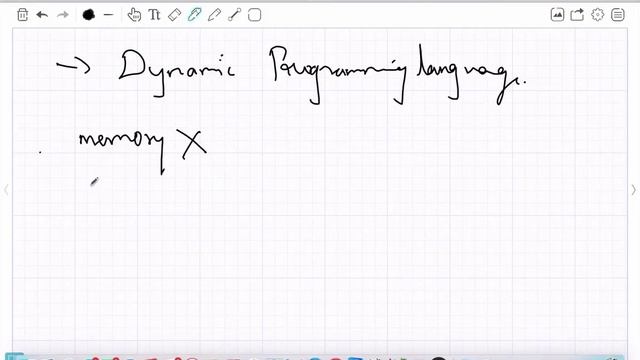 → Dynamic Programming language.
memory X